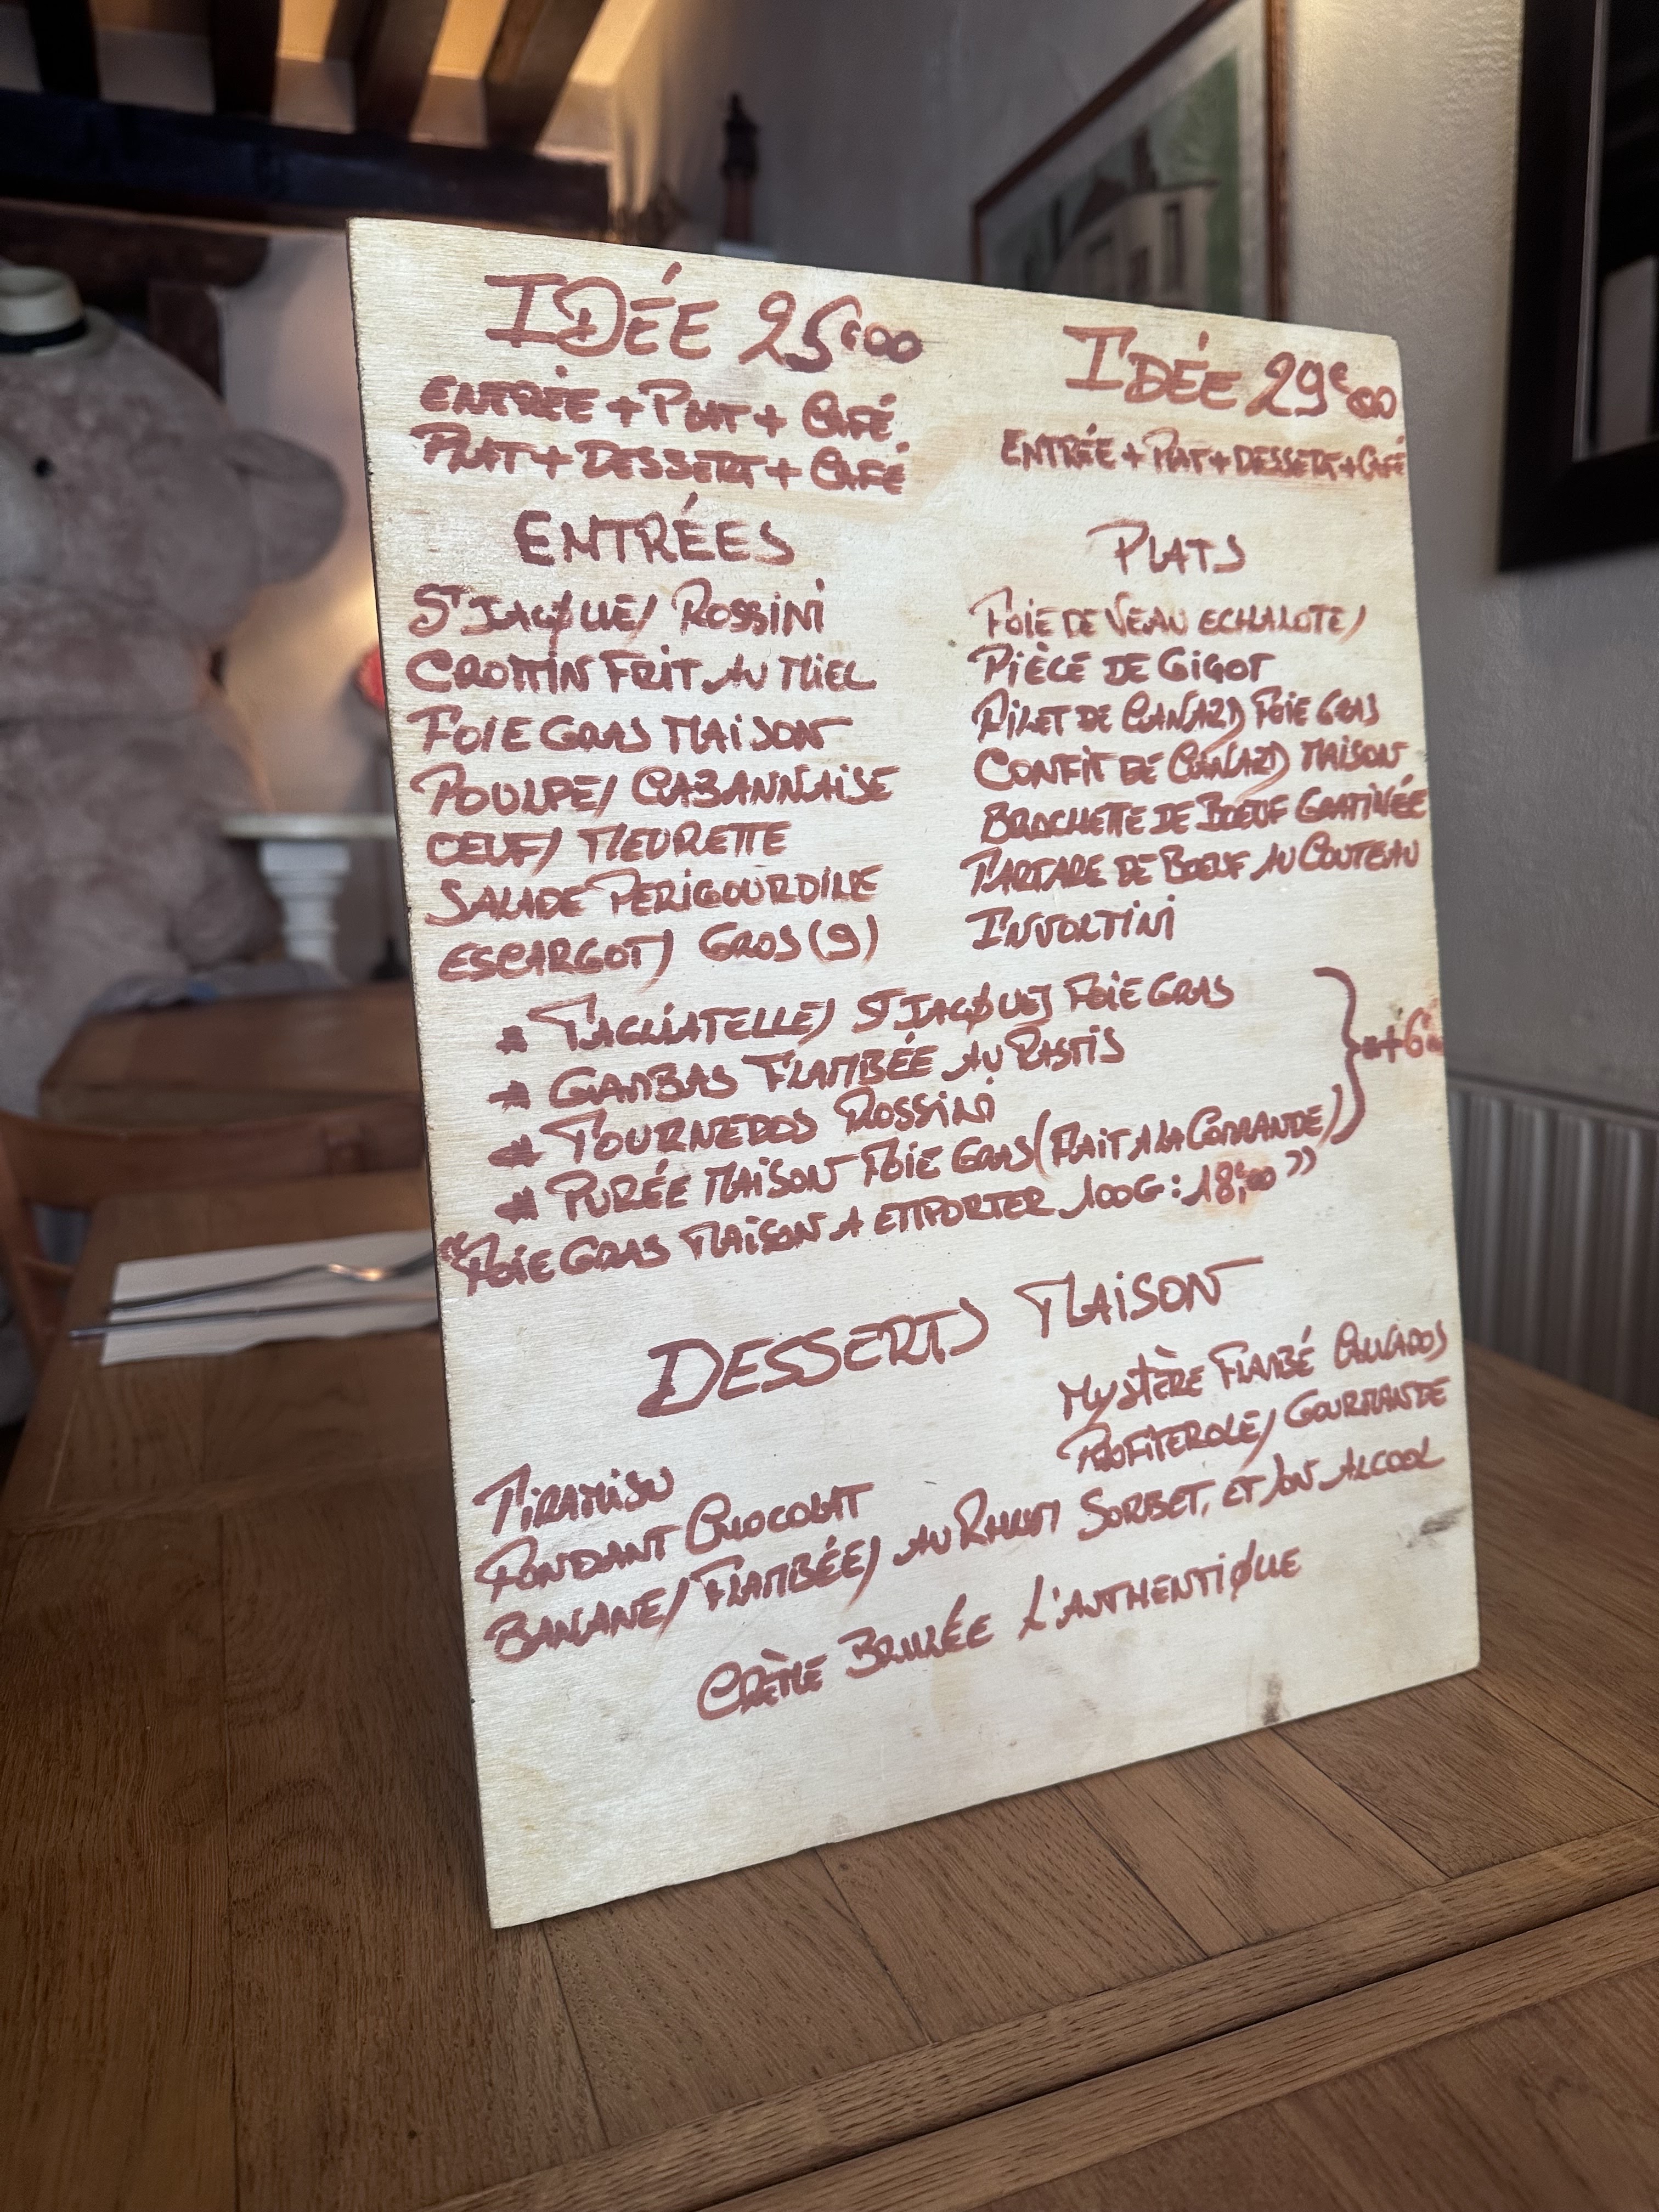 IDÉE 25€00
ENTRÉE + PLAT + CAFÉ
PLAT + DESSERT + CAFÉ
IDÉE 29€00
ENTRÉE + PLAT + DESSERT + CAFÉ
ENTRÉES
ST JACQUES ROSSINI
CROTTIN FRIT AU MIEL
FOIE GRAS MAISON
POULPES CABANNAISE
OEUFS MEURETTE
SALADE PERIGOURDINE
ESCARGOTS GROS (9)
PLATS
FOIE DE VEAU ECHALOTES
PIÈCE DE GIGOT
FILET DE CANARD FOIE GRAS
CONFIT DE CANARD MAISON
BROCHETTE DE BOEUF GRATINÉE
TARTARE DE BOEUF AU COUTEAU
INVOLTINI
TAGLIATELLES ST JACQUES FOIE GRAS
GAMBAS FLAMBÉE AU PASTIS
TOURNEDOS ROSSINI
PURÉE MAISON FOIE GRAS (FAIT A LA COMMANDE)
+6€
"FOIE GRAS MAISON A EMPORTER 100G : 18€00"
DESSERTS MAISON
MYSTÈRE FLAMBÉ CALVADOS
PROFITEROLES GOURMANDE
TIRAMISU
FONDANT CHOCOLAT
BANANES FLAMBÉES AU RHUM SORBET, ET SON ALCOOL
CRÈME BRULÉE L'AUTHENTIQUE